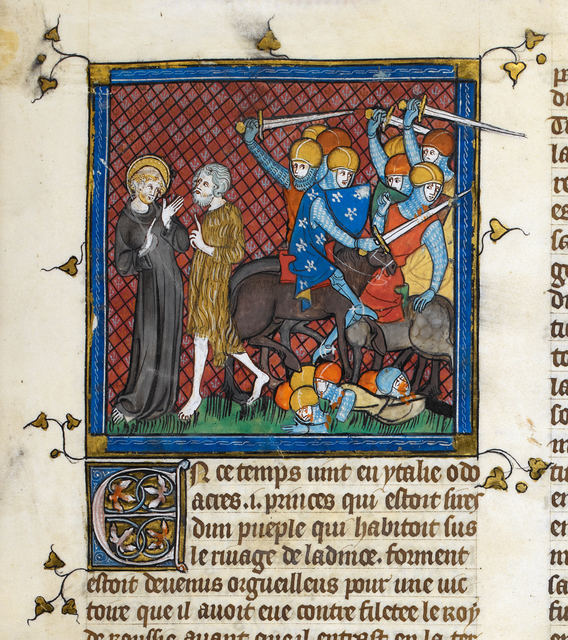 En ce temps uint en ytalie odo
acres .i. princes qui estoit sires
dun pueple qui habitoit sus
le riuage de ladinoe. forment
estoit deuenus orgueilleus pour une uic
toire que il auoit eue contre filetee le roy
de roussie auant que il entrast en la ter